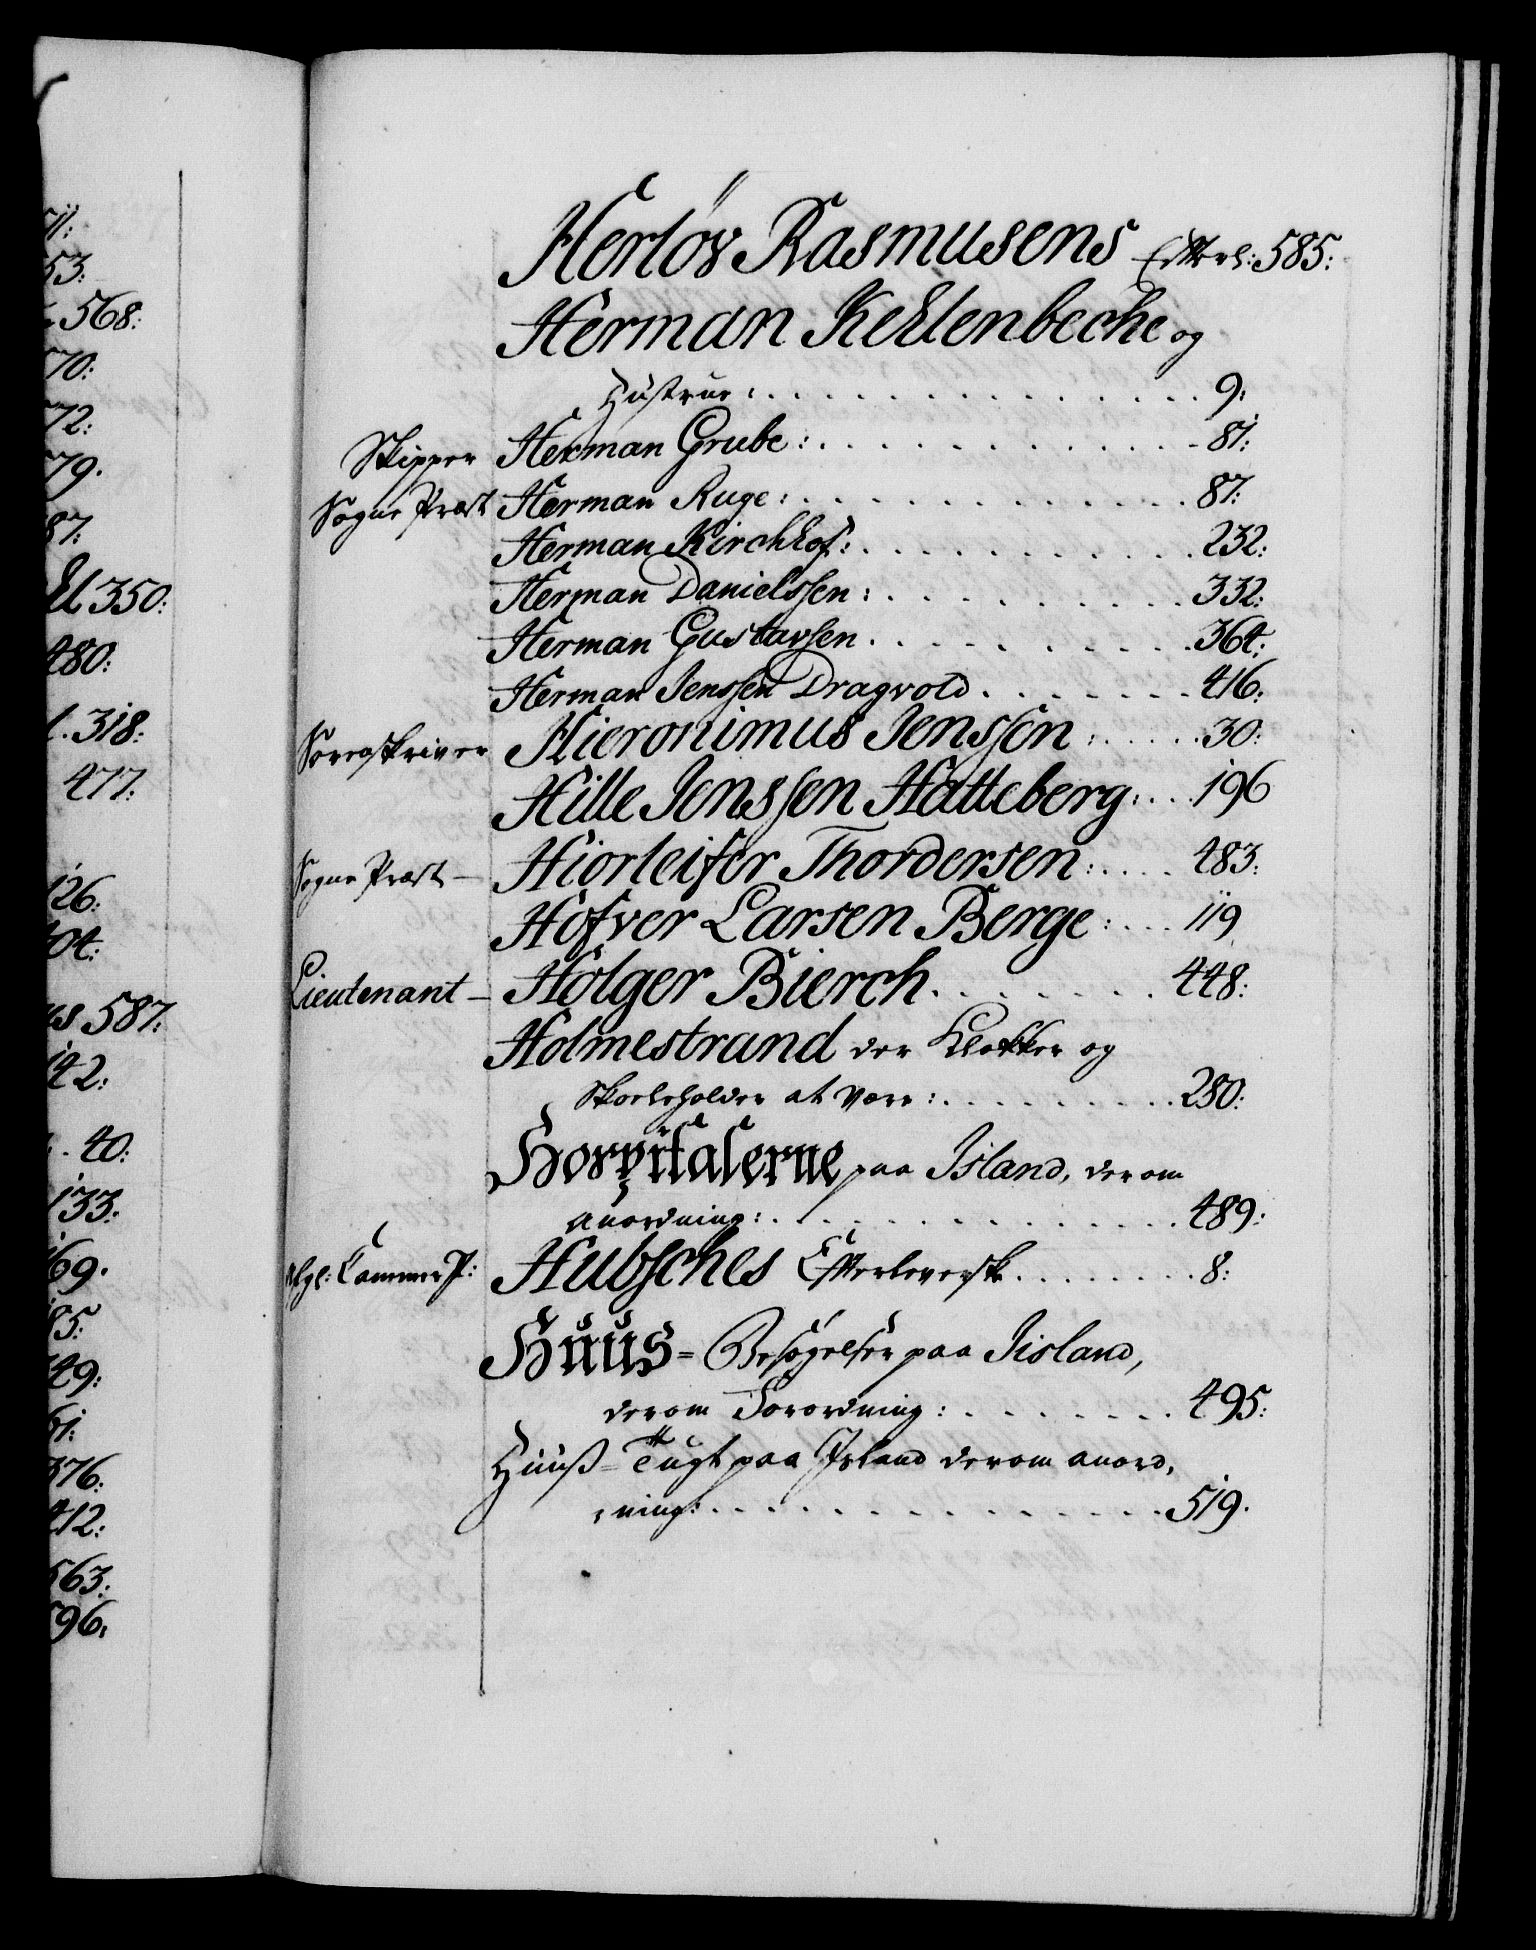 511:
53:
568:
70:
72:
79.
87:
el 350:
480:
l. 318:
477:
126:
404:
us 587:
142:
. 40:
133:
69.
85:
49:
61:
376:
412:
563:
596:
Herlöv Rasmusens Efterl: 585:
Herman Kellenbeche og
Hustrue: 9:
Skipper Herman Grube: 81:
Sogne Præst Herman Ruge: 87:
Herman Kirchhof: 232:
Herman Danielssen: 332:
Herman Gustavsen 364:
Herman Jenssen Dragvold 416:
Sorenskriver Hieronimus Jenssen: 30:
Hille Jenssen Hatteberg: 196
Sogne Præst – Hiorleifer Thordersen: 483:
Hofver Larsen Berge: 119
Lieutenant – Holger Bierch 448:
Holmestrand der Klokker og
Skoeleholder at være: 280:
Hospitalerne paa Island, derom
anordning: 489:
afg: Cammer P: Hubsches Efterleversk 8:
Huus = Besøgelser paa Iisland,
derom Forordning: 495:
Huuß = Tugt paa Island derom anord,
,ning: 519.